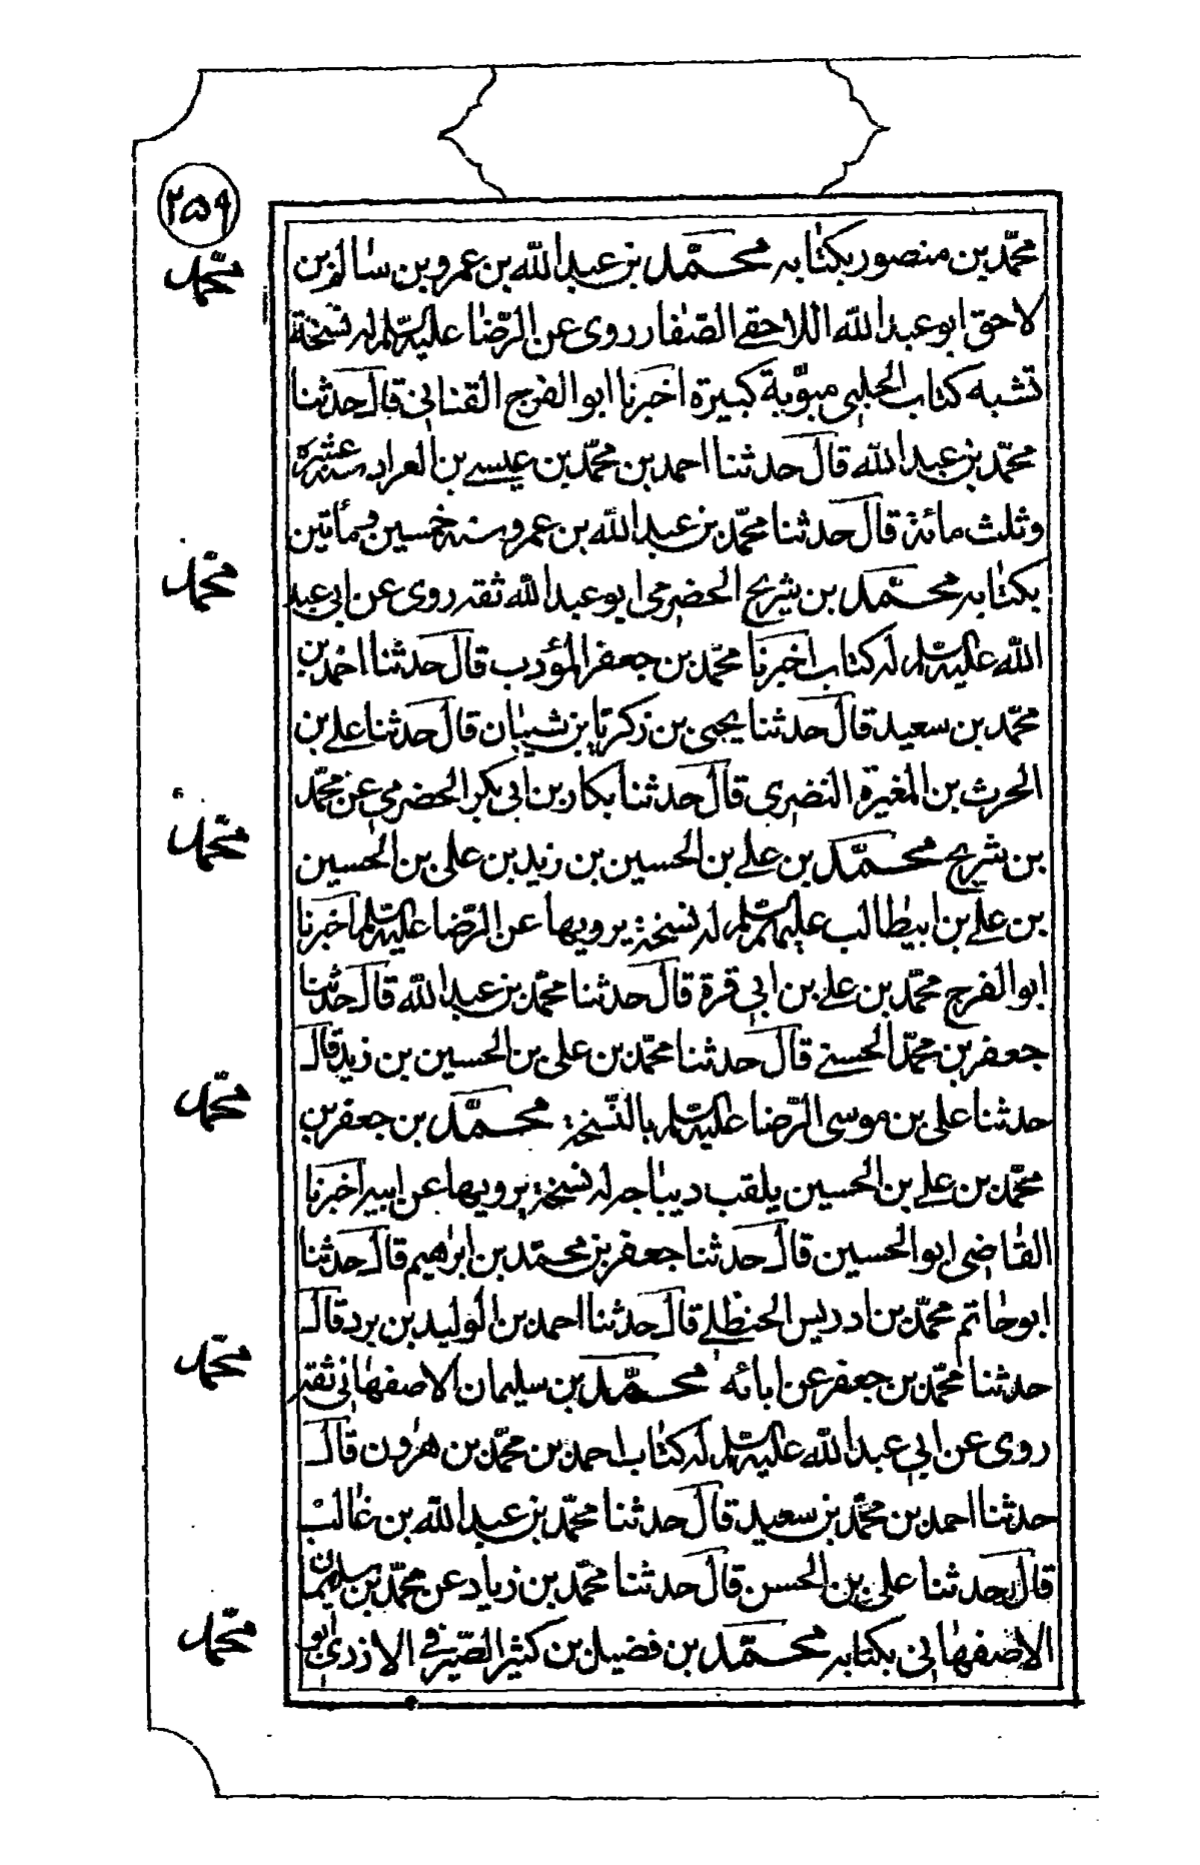 ٢٥٩
محمّد بن منصور بكتابه محمّد بن عبد الله بن عمرو بن سالم بن
محمّد
لاحق ابو عبد الله اللاحقي الصّفار روى عن الرّضا عليه السّلم له نسخة
تشبه كتاب الحلبي مبوّبة كبيرة اخبرنا ابو الفرج القناني قال حدثنا
محمّد بن عبد الله قال حدثنا احمد بن محمّد بن عيسى بن العراد سنة عشرة
وثلث مائة قال حدثنا محمّد بن عبد الله بن عمرو سنة خمسين ومأتين
بكتابه محمّد بن شريح الحضرمي ابو عبد الله ثقة روى عن ابي عبد
محمّد
الله عليه السّلم له كتاب اخبرنا محمّد بن جعفر المؤدب قال حدثنا احمد بن
محمّد بن سعيد قال حدثنا يحيى بن زكريا بن شيبان قال حدثنا علي بن
الحرث بن المغيرة النضري قال حدثنا بكار بن ابي بكر الحضرمي عن محمّد
بن شريح محمّد بن علي بن الحسين بن زيد بن علي بن الحسين
محمّد
بن علي بن ابيطالب عليهم السّلم له نسخة يرويها عن الرّضا عليه السّلم اخبرنا
ابو الفرج محمّد بن علي بن ابي قرة قال حدثنا محمّد بن عبد الله قال حدثنا
جعفر بن محمّد الحسني قال حدثنا محمّد بن علي بن الحسين بن زيد قال
حدثنا علي بن موسى الرّضا عليه السّلم بالنّسخة محمّد بن جعفر بن
محمّد
محمّد بن علي بن الحسين يلقب ديباجه له نسخة يرويها عن ابيه اخبرنا
القاضي ابو الحسين قال حدثنا جعفر بن محمّد بن ابراهيم قال حدثنا
ابو حاتم محمّد بن ادريس الحنظلي قال حدثنا احمد بن الوليد بن برد قال
حدثنا محمّد بن جعفر عن ابائه محمّد بن سليمان الاصفهاني ثقة
محمّد
روى عن ابي عبد الله عليه السّلم له كتاب احمد بن محمّد بن هرون قال
حدثنا احمد بن محمّد بن سعيد قال حدثنا محمّد بن عبد الله بن غالب
قال حدثنا علي بن الحسن قال حدثنا محمّد بن زياد عن محمّد بن سليمان
الاصفهاني بكتابه محمّد بن فضيل بن كثير الصّيرفي الازدي ابو
محمّد